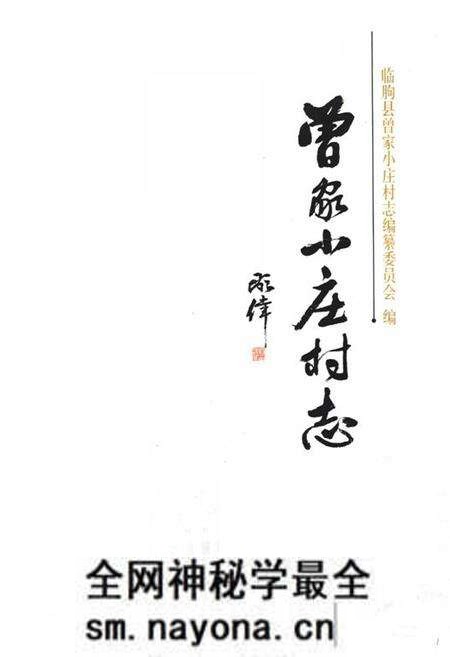 临朐县曾家小庄村志编纂委员会 编
曾家小庄村志
全网神秘学最全
sm.nayona.cn